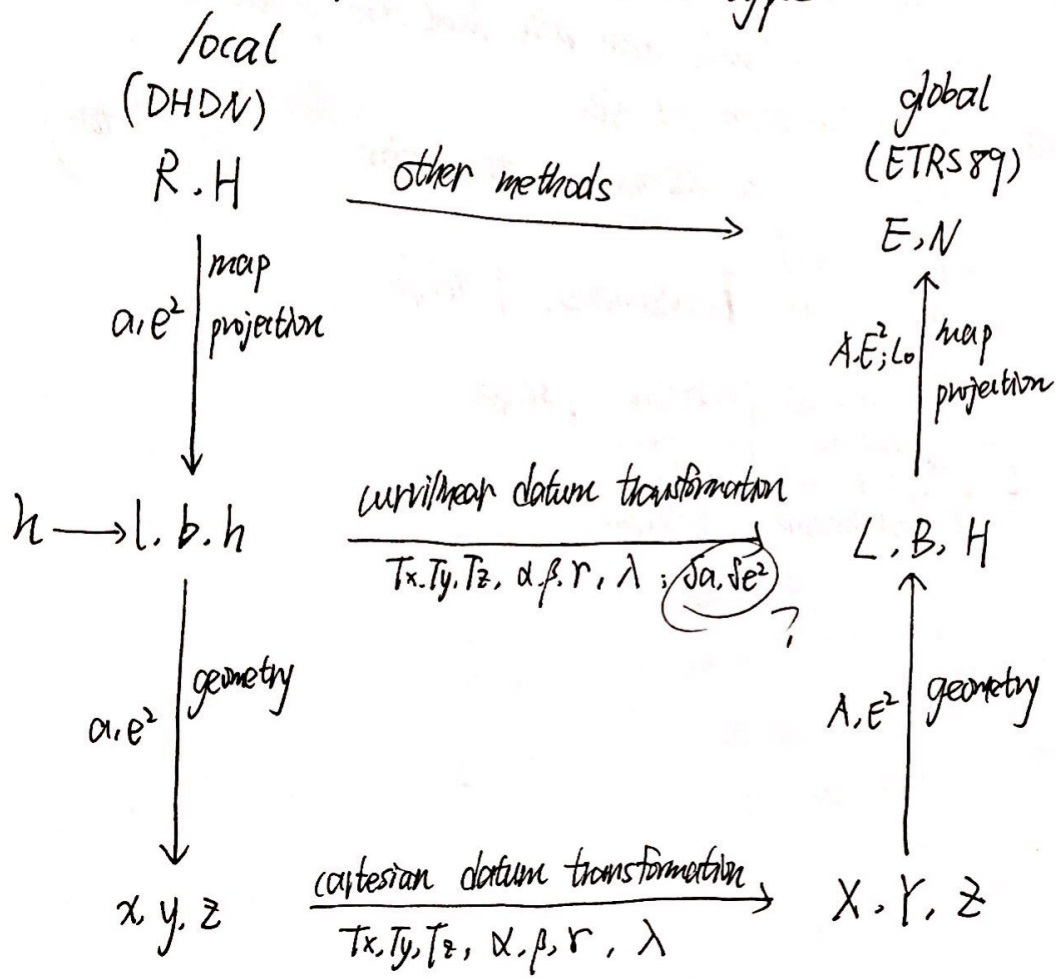 type
local
(DHDN)
global
(ETRS89)
R. H
other methods
E, N
a, e²
map
projection
A. E²; L₀
map
projection
h → l. b. h
curvilinear datum transformation
Tx. Ty. Tz, α. β. γ, λ ; δa, δe²
?
L. B, H
a, e²
geometry
A, E²
geometry
x, y, z
cartesian datum transformation
Tx, Ty, Tz, α, β, γ, λ
X, Y, Z